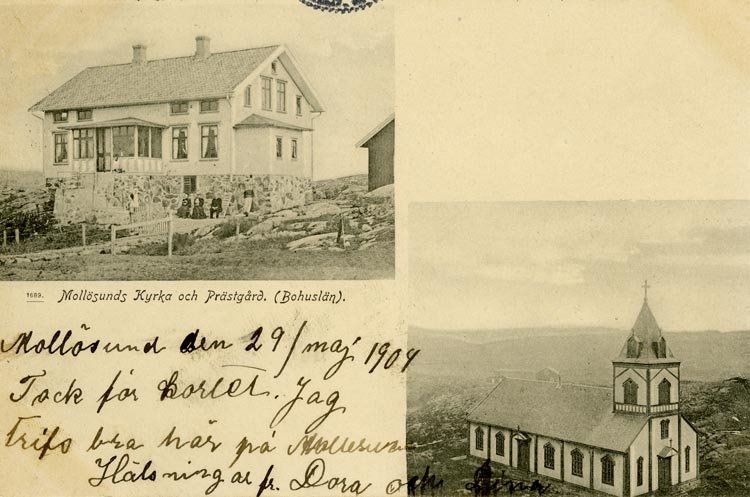 1689. Mollösunds Kyrka och Prästgård. (Bohuslän).
Mollösund den 29/maj 1904
Tack för kortet. Jag
Trifs bra här på Mollösund
Hälsningar fr. Dora och Lina